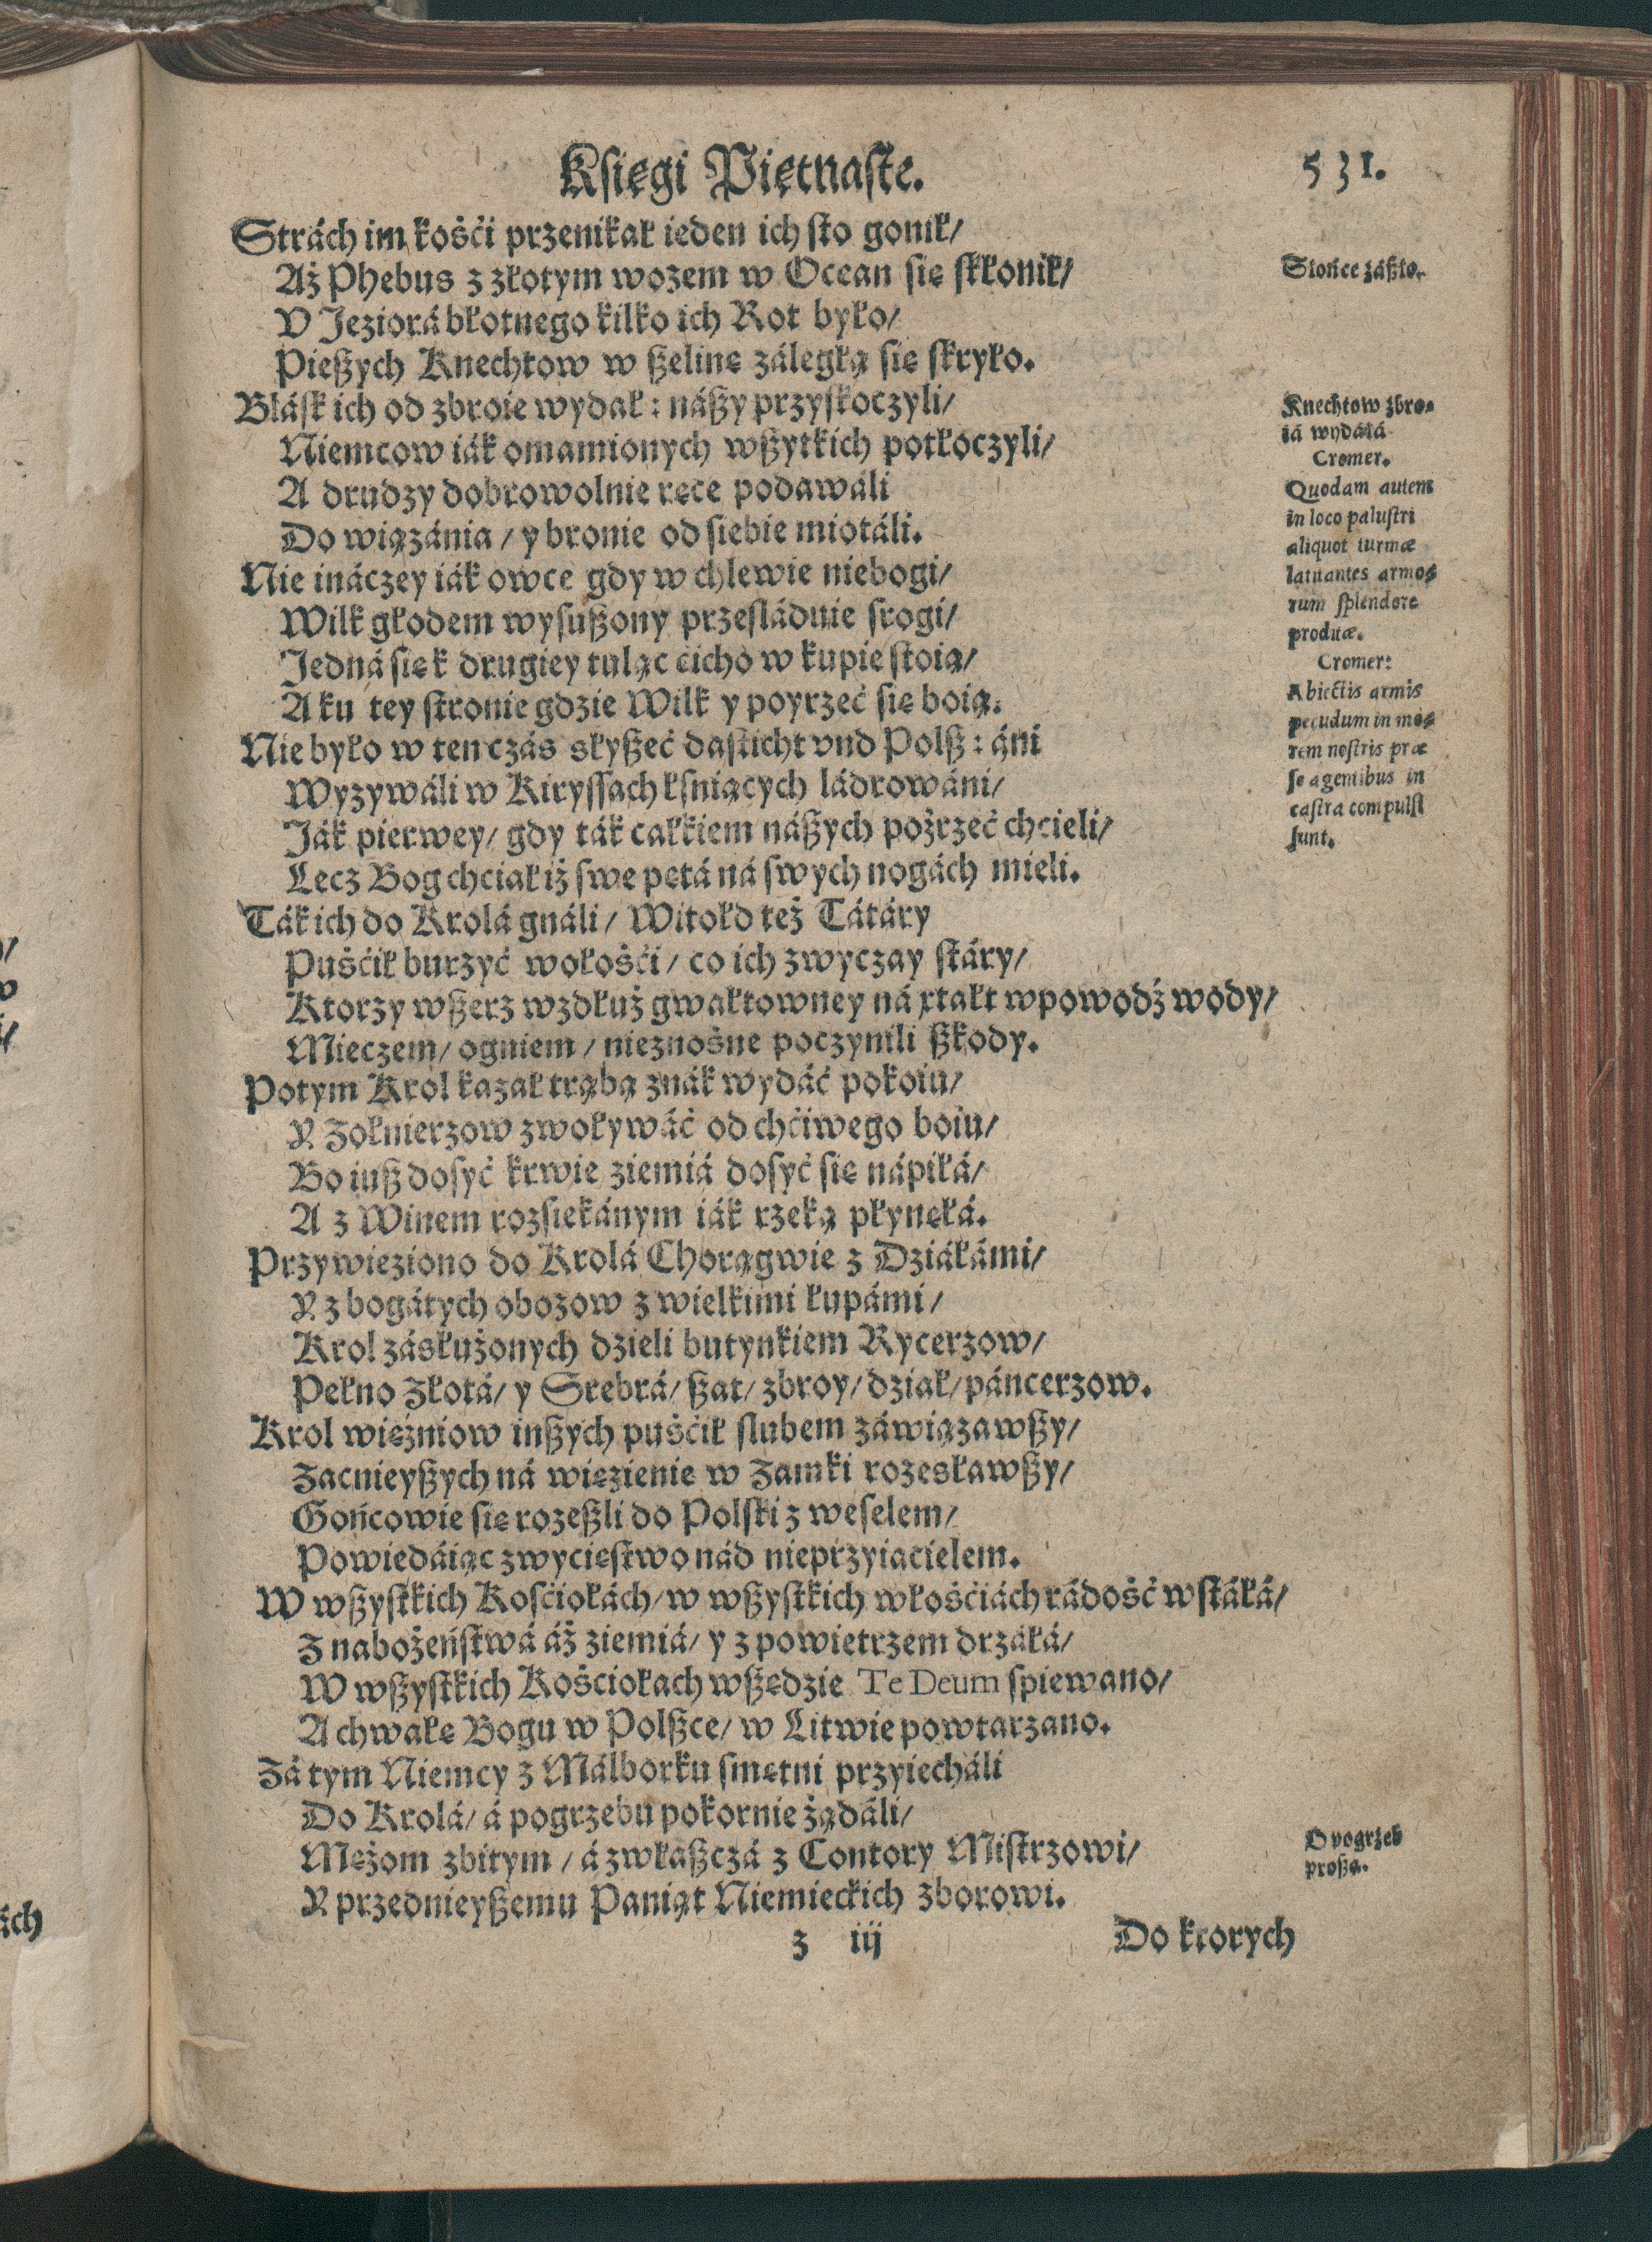 Księgi Piętnaste.
531.
Strách im kośći przenikał ieden ich sto gonił/
Aż Phebus z złotym wozem w Ocean się skłonił/
V Jeziorá błotnego kilko ich Rot było/
Pießych Knechtow w ßelinę záległą się skryło.
Blásk ich od zbroie wydał: náßy przyskoczyli/
Niemcow iák omamionych wßytkich potłoczyli/
A drudzy dobrowolnie ręce podawáli
Do wiązánia / y bronie od siebie miotáli.
Nie ináczey iák owce gdy w chlewie niebogi/
Wilk głodem wysußony prześláduie srogi/
Jedná się k drugiey tuląc ćicho w kupie stoią/
A ku tey stronie gdzie Wilk y poyrzeć się boią.
Nie było w ten czás słyßeć dasticht vnd Polß: áni
Wyzywáli w Kiryssach lśniących ládrowáni/
Ják pierwey/ gdy ták całkiem náßych pożrzeć chcieli/
Lecz Bog chciał iż swe pętá ná swych nogách mieli.
Ták ich do Krolá gnáli/ Witold też Tátáry
Puśćił burzyć wołośći/ co ich zwyczay stáry/
Ktorzy wßerz wzdłuż gwałtowney ná xtałt wpowodź wody/
Mieczem/ ogniem/ nieznośne poczynili ßkody.
Potym Krol kazał trąbą znák wydáć pokoiu/
Y Zołnierzow zwoływáć od chćiwego boiu/
Bo iuß dosyć krwie ziemiá dosyć się nápiłá/
A z Winem rozsiekánym iák rzeką płynęłá.
Przywieziono do Krolá Chorągwie z Dziáłámi/
Y z bogátych obozow z wielkimi łupámi/
Krol zásłużonych dzieli butynkiem Rycerzow/
Pełno Złotá/ y Srebrá/ ßat/ zbroy/ dział/ páncerzow.
Krol więźniow inßych puśćił slubem záwiązawßy/
Zacnieyßych ná więzienie w Zamki rozesławßy/
Gońcowie się rozeßli do Polski z weselem/
Powiedáiąc zwycięstwo nád nieprzyiacielem.
W wßystkich Kosćiołách/ w wßystkich włośćiách rádość wstáłá/
Z nabożeństwá áż ziemiá/ y z powietrzem drżáłá/
W wßystkich Kośćiołach wßędzie Te Deum spiewano/
A chwałę Bogu w Polßce/ w Litwie powtarzano.
Zá tym Niemcy z Málborku smętni przyiecháli
Do Krolá/ á pogrzebu pokornie żądáli/
Mężom zbitym / á zwłaßczá z Contory Mistrzowi/
Y przednieyßemu Paniąt Niemieckich zborowi.
z iij
Do ktorych
Słońce záßło.
Knechtow zbro=
iá wydáłá
Cromer.
Quodam autem
in loco palustri
aliquot turmæ
latitantes armo=
rum splendore
proditæ.
Cromer:
Abiectis armis
pecudum in mo=
rem nostris præ
se agentibus in
castra compulsi
sunt.
O pogrzeb
proßą.